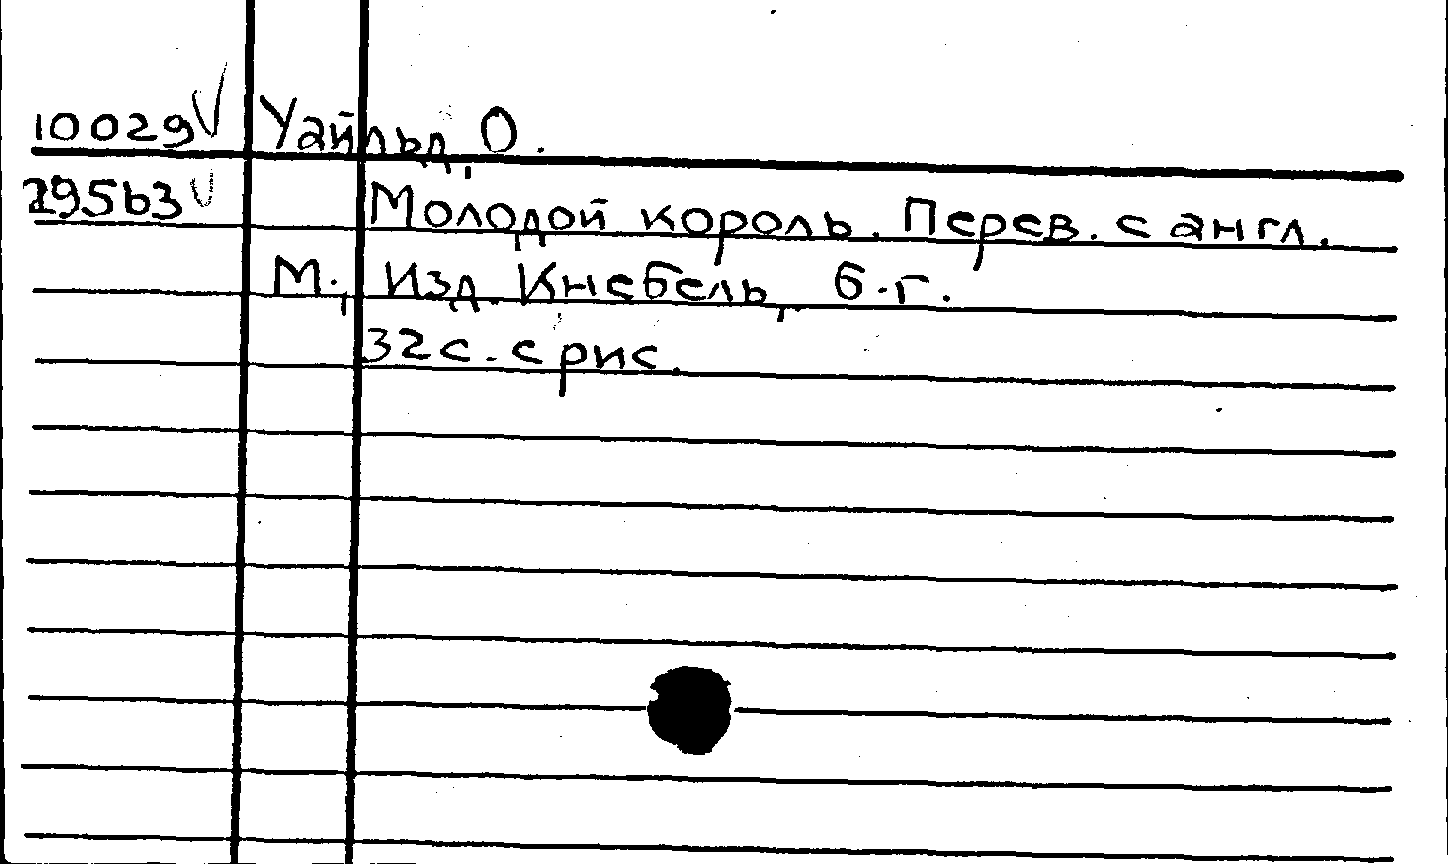 10029 √ Уайльд, О.
29563 √ Молодой король. Перев. с англ.
М., Изд. Кнебель, б.г.
32с. с рис.